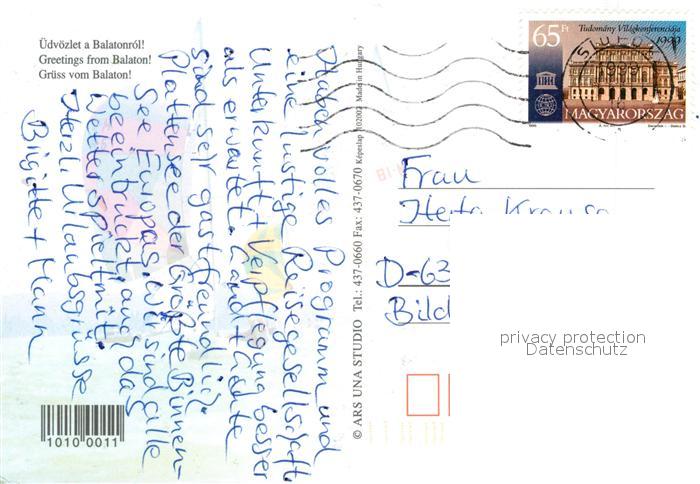 Üdvözlet a Balatonról!
Greetings from Balaton!
Grüss vom Balaton!
Haben volles Programm und
eine lustige Reisegesellschaft
Unterkunft + Verpflegung besser
als erwartet. Land + Leute
sind sehr gastfreundlich.
Plattensee der Größte Binnen-
See Europas. Wir sind alle
beeindruckt auch das
Wetter spielt mit.
Herzl. Urlaubsgrüsse
Brigitte + Mann
1010 0011
© ARS UNA STUDIO Tel.: 437-0660 Fax: 437-0670 Képeslap 102002 Made in Hungary
65 Ft
Tudomány Világkonferenciája
1999
MAGYARORSZÁG
Frau
Herta Krause
D-63
Bild
privacy protection
Datenschutz